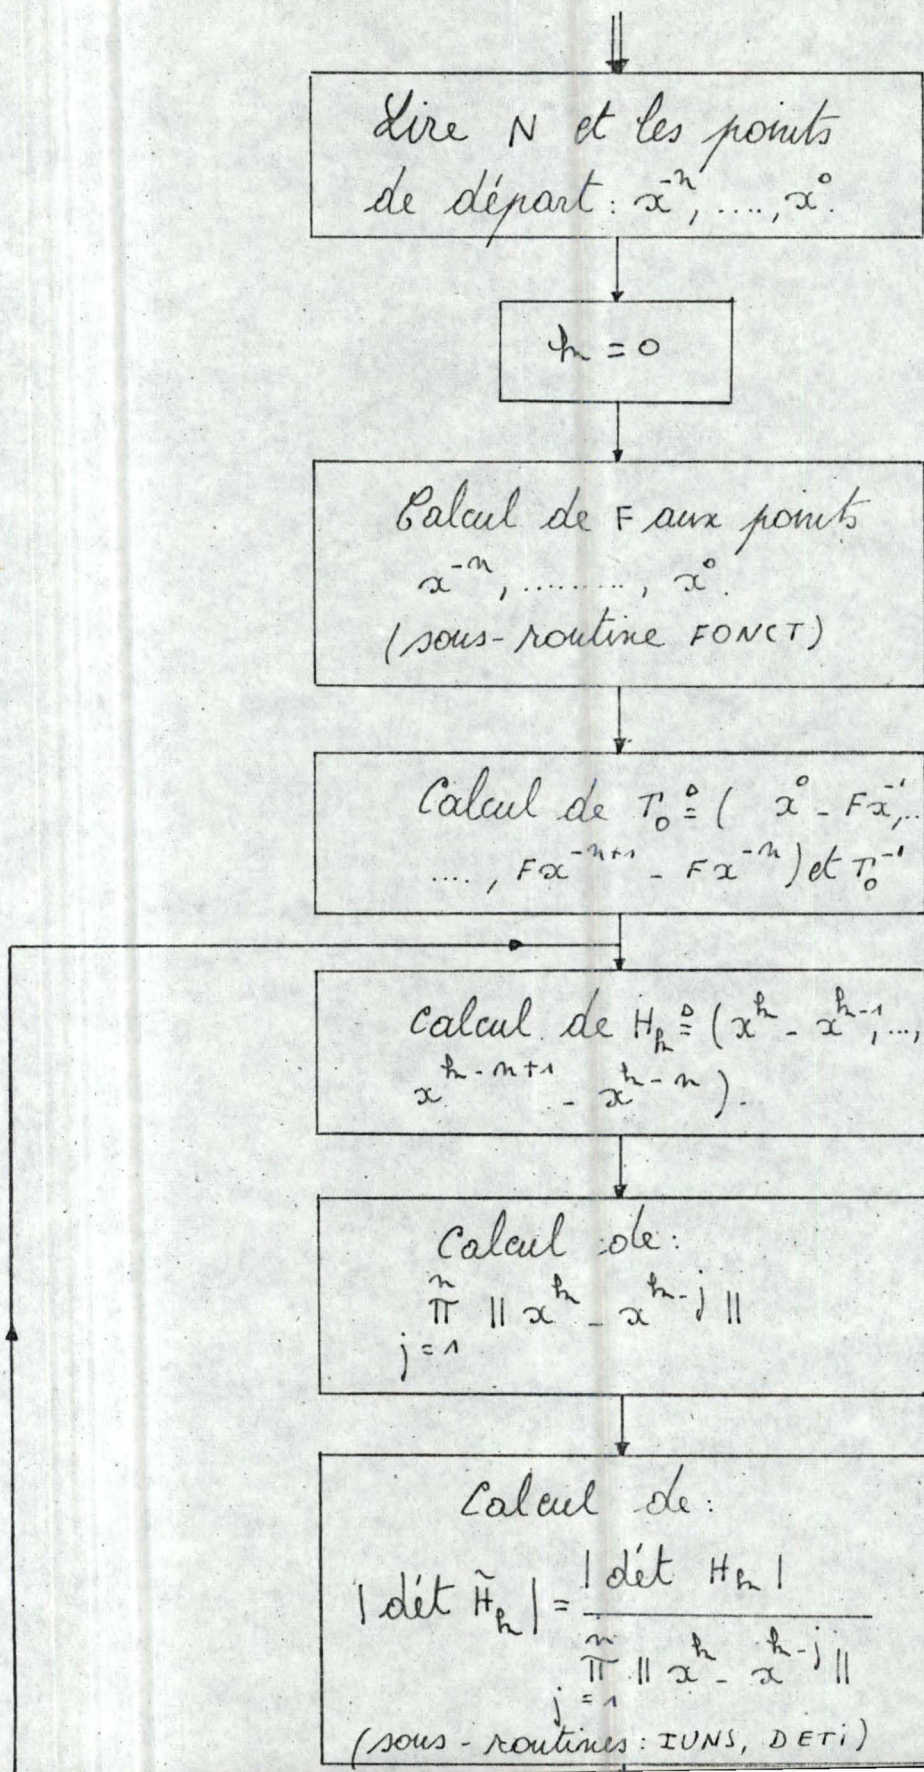 Lire N et les points
de départ : x⁻ⁿ, ...., x⁰.
k = 0
Calcul de F aux points
x⁻ⁿ, ........, x⁰.
(sous-routine FONCT)
Calcul de Γ₀ ≜ ( x⁰ - Fx⁻¹,..
...., Fx⁻ⁿ⁺¹ - Fx⁻ⁿ) et Γ₀⁻¹
Calcul de Hₖ ≜ (xᵏ - xᵏ⁻¹,...,
xᵏ⁻ⁿ⁺¹ - xᵏ⁻ⁿ).
Calcul de :
n
Π || xᵏ - xᵏ⁻ʲ ||
j = 1
Calcul de :
| dét Hₖ |
| dét H̃ₖ | =
n
Π || xᵏ - xᵏ⁻ʲ ||
j = 1
(sous-routines : IUNS, DETi)